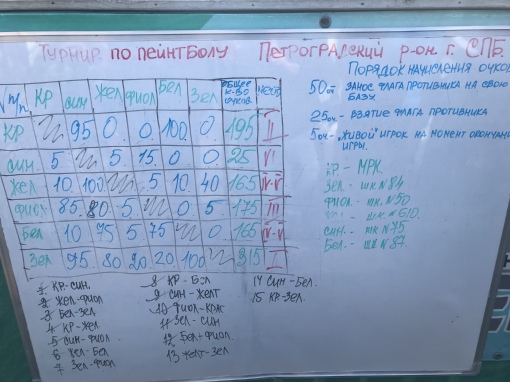 Турнир по пейнтболу Петроградский р-он г. СПб.
Порядок начисления очков
50 оч занос флага противника на свою базу
25 оч. - взятие флага противника
5 оч - "живой" игрок на момент окончания игры.
№ п/п Кр Син Жел Фиол Бел Зел Общее к-во очков. место
Кр 95 0. 0. 100 0. 195 II
Син. 5. 15. 0 0. 25 VI
Жел 10. 100 5 10. 40 165 IV-V
Фиол 85. 80 5. 0. 5. 175 III
Бел 10 75 5 75 0. 165 IV-V
Зел 95. 80 20 20 100 315 I
Кр. - МРК
Зел. - шк N84
Фиол - шк. N50
шк. N610.
Син. - шк N75
Бел. - шк N87.
1 Кр-Син.
2 Жел-Фиол
3 Бел-Зел
4 Кр-Жел
5 Син-Фиол
6 Жел-Бел
7 Зел-Фиол
8 Кр-Бел
9 Син-Желт
10 Фиол-Крас
11 Зел-Син
12 Бел-Фиол.
13 Желт-Зел
14 Син-Бел.
15 Кр-Зел.